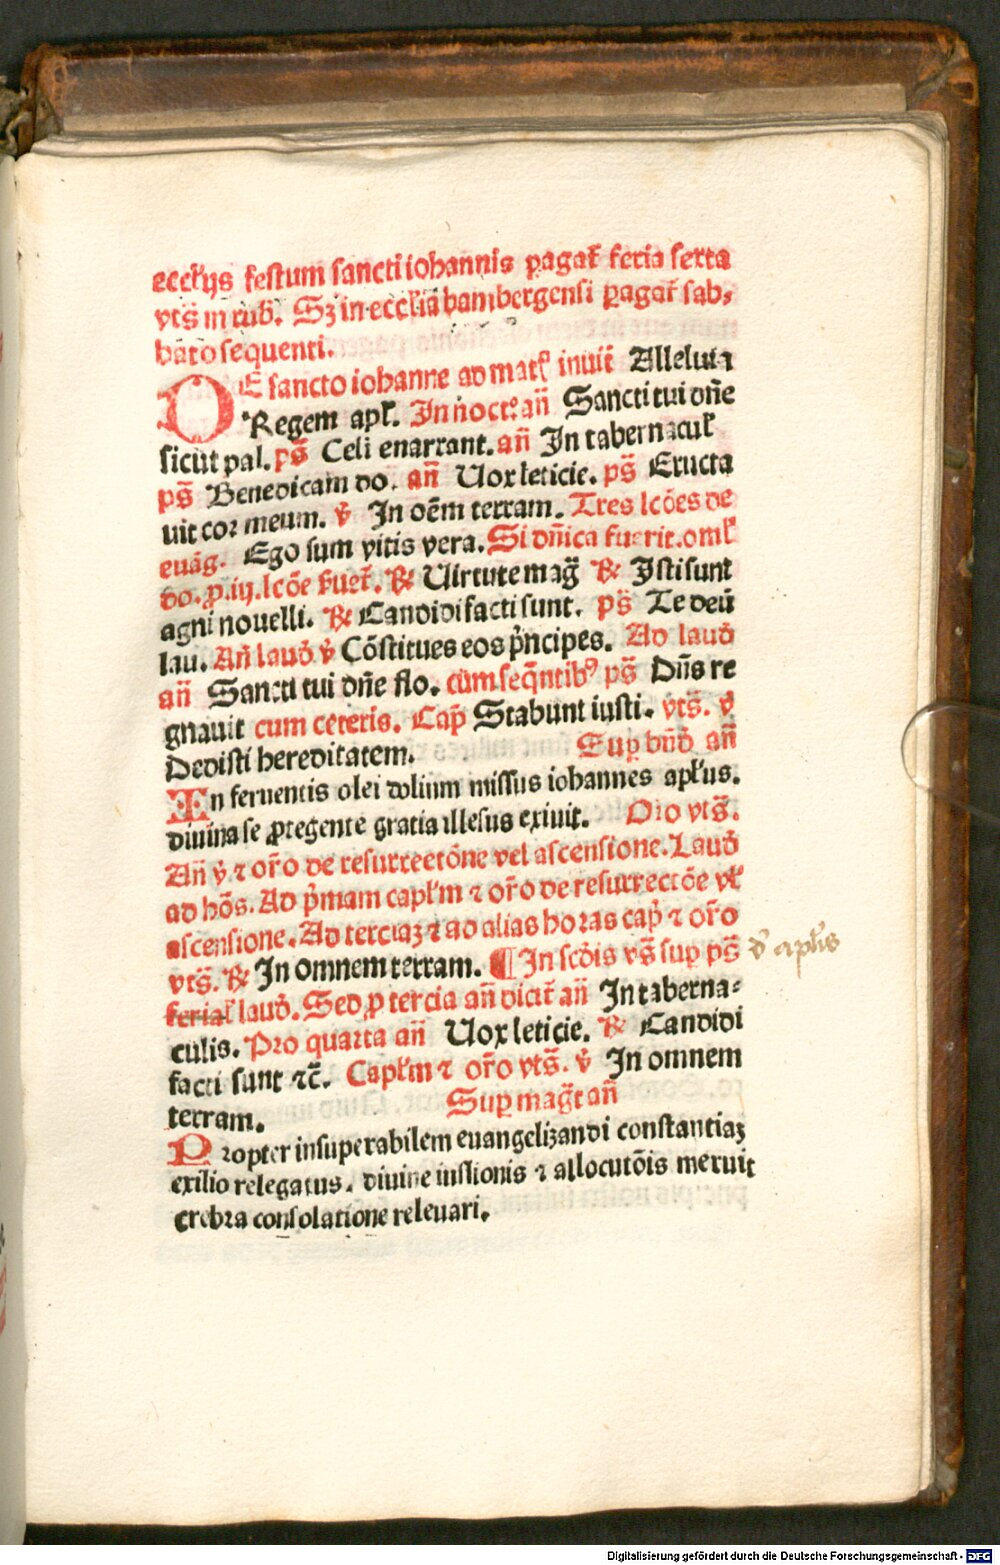 eccľijs festum sancti iohannis ꝑagat̄ feria sexta
vts̄ in rub̄. Sꝫ in ecclīa bambergensi ꝑagat̄ sab⸗
bato sequenti.
DE sancto iohanne ad mat̄ inuit̄ Alleluia
Regem apl̄. In noct͛. an̄ Sancti tui dn̄e
sicut pal. ps̄ Celi enarrant. an̄ In tabernacul̄
ps̄ Benedicam do. an̄ Uox leticie. ps̄ Eructa
uit cor meum. v̄ In oēm terram. Tres lcōes de
euāg. Ego sum vitis vera. Si dn̄ica fuerit. oml̄
do. ꝓ. iij. lcōe fuet̄. ℟ Uirtute maḡ ℟ Isti sunt
agni nouelli. ℟ Candidi facti sunt. ps̄ Te deū
lau. An̄ laud̄ v̄ Cōstitues eos p̄ncipes. Ad laud̄
an̄ Sancti tui dn̄e flo. cum seq̄ntibꝰ ps̄ Dn̄s re
gnauit cum ceteris. Cap̄ Stabunt iusti. vts̄. v̄
Dedisti hereditatem. Suꝑ bn̄d̄ an̄
In feruentis olei dolium missus iohannes apl̄us.
diuina se ꝓtegente gratia illesus exiuit. Oro vts̄.
An̄ v̄ ⁊ or̄o de resurrectōne vel ascensione. Laud̄
ad hōs. Ad p̄mam capľm ⁊ or̄o de resurrectōe vľ
ascensione. Ad terciaꝫ ⁊ ad alias horas cap̄ ⁊ or̄o
vts̄. ℟ In omnem terram. ¶ In scd̄is vs̄ suꝑ ps̄ d̄ apľis
ferial̄ laud̄. Sed ꝓ tercia an̄ dicit̄ an̄ In taberna⸗
culis. Pro quarta an̄ Uox leticie. ℟ Candidi
facti sunt ⁊c̄. Capľm ⁊ or̄o vts̄. v̄ In omnem
terram. Suꝑ maḡt an̄
Propter insuperabilem euangelizandi constantiaꝫ
exilio relegatus. diuine iussionis ⁊ allocutōis meruit
crebra consolatione releuari.
Digitalisierung gefördert durch die Deutsche Forschungsgemeinschaft - DFG